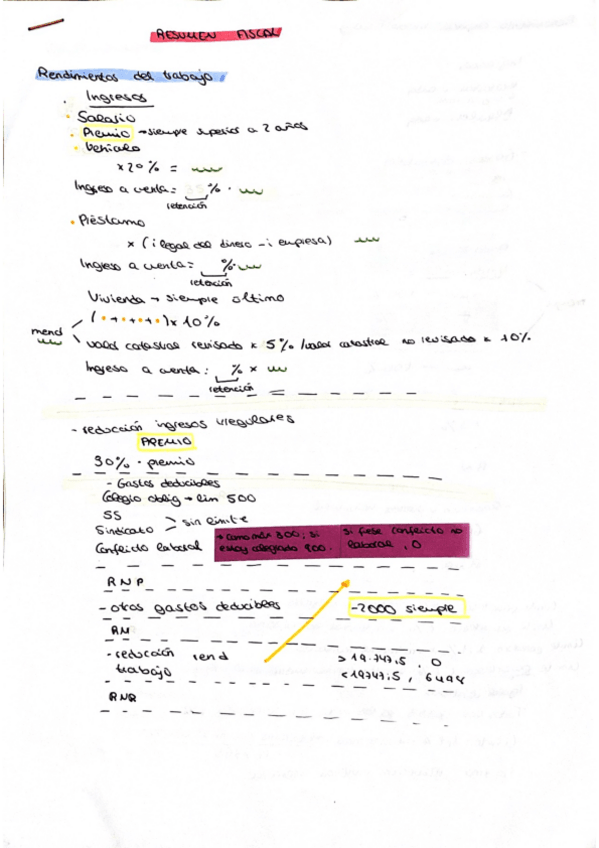 RESUMEN FISCAL
Rendimientos del trabajo
· Ingresos
· Salario
· Premio → siempre superior a 2 años
· Vehículo
x 20% =
Ingreso a cuenta = 35% ·
retención
· Préstamo
x (i legal del dinero - i empresa)
Ingreso a cuenta = % ·
retención
Vivienda → siempre último
(· + · + · + ·) x 10%
menor
valor catastral revisado x 5% / valor catastral no revisado x 10%
Ingreso a cuenta: % x
retención
- reducción ingresos irregulares
PREMIO
30% · premio
- Gastos deducibles
Colegio oblig → lim 500
SS
Sindicato > sin límite
Conflicto laboral → como más 300; si estoy colegiado 900. si fuese conflicto no laboral, 0
RNP
- otros gastos deducibles -2000 siempre
RN
- reducción rend trabajo > 19.747,5, 0
< 19747,5, 6498
RNR